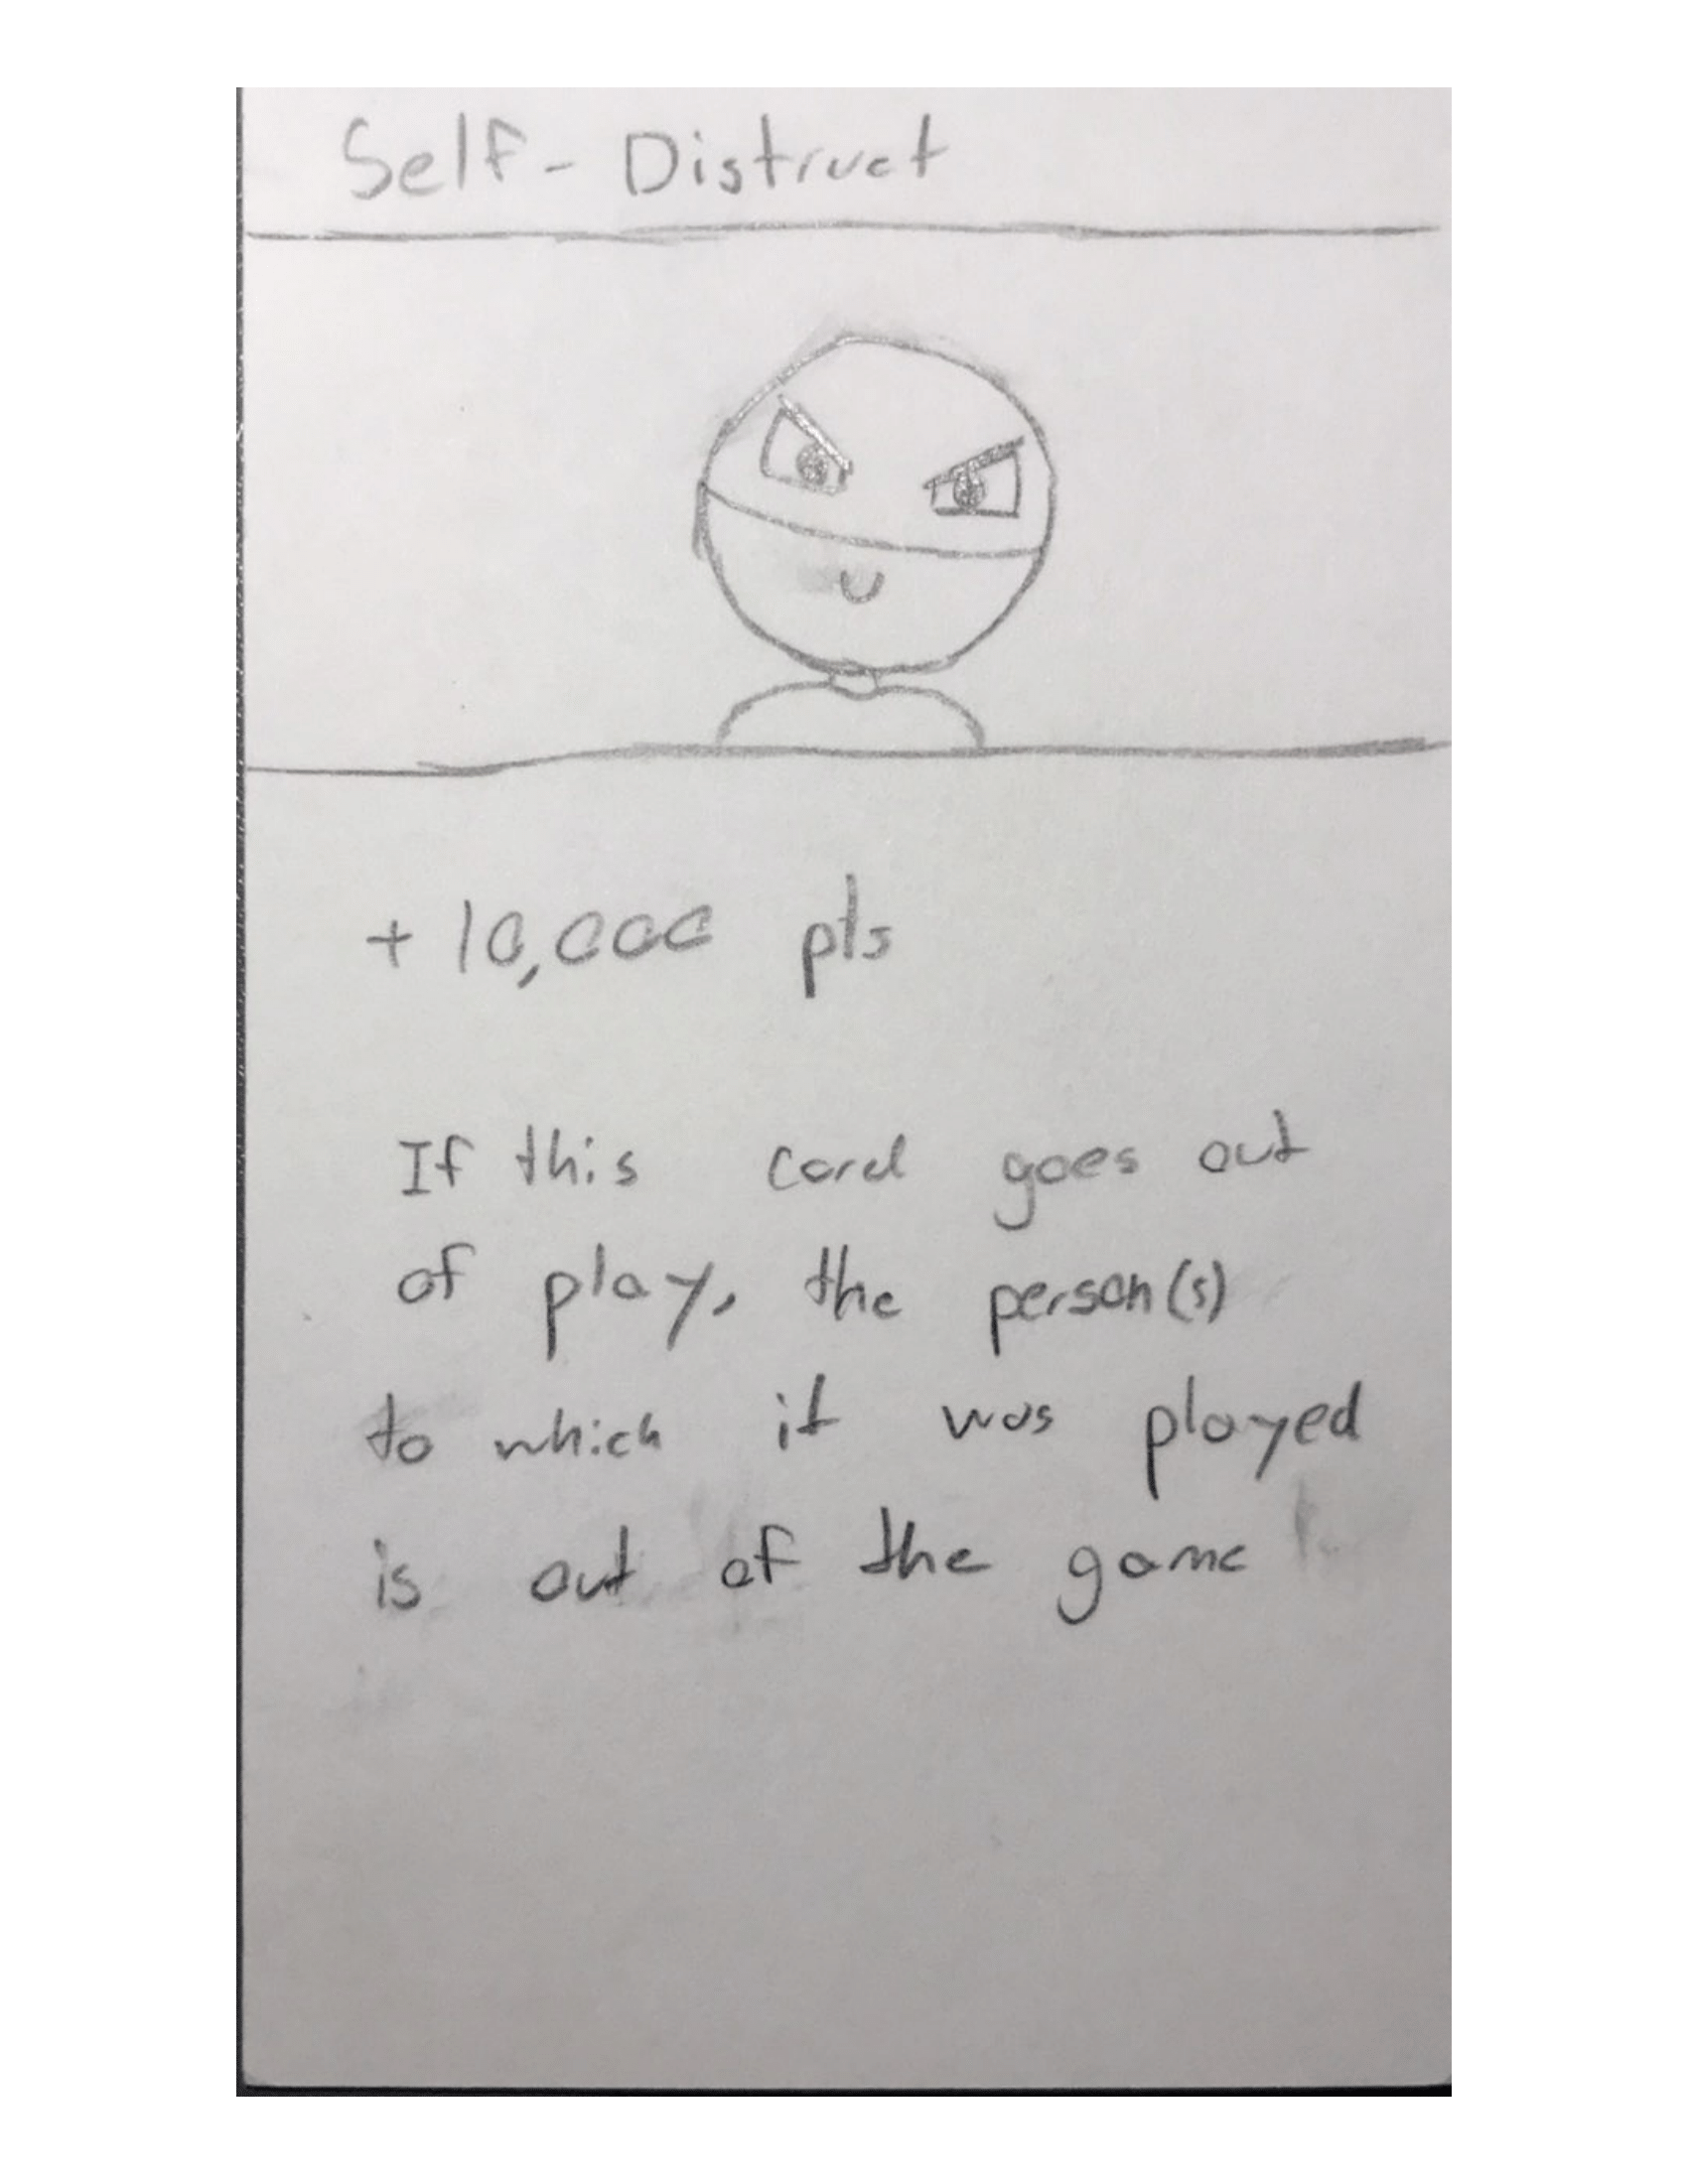 Self-Distruct
+ 10,000 pts
If this card goes out
of play, the person(s)
to which it was played
is out of the game